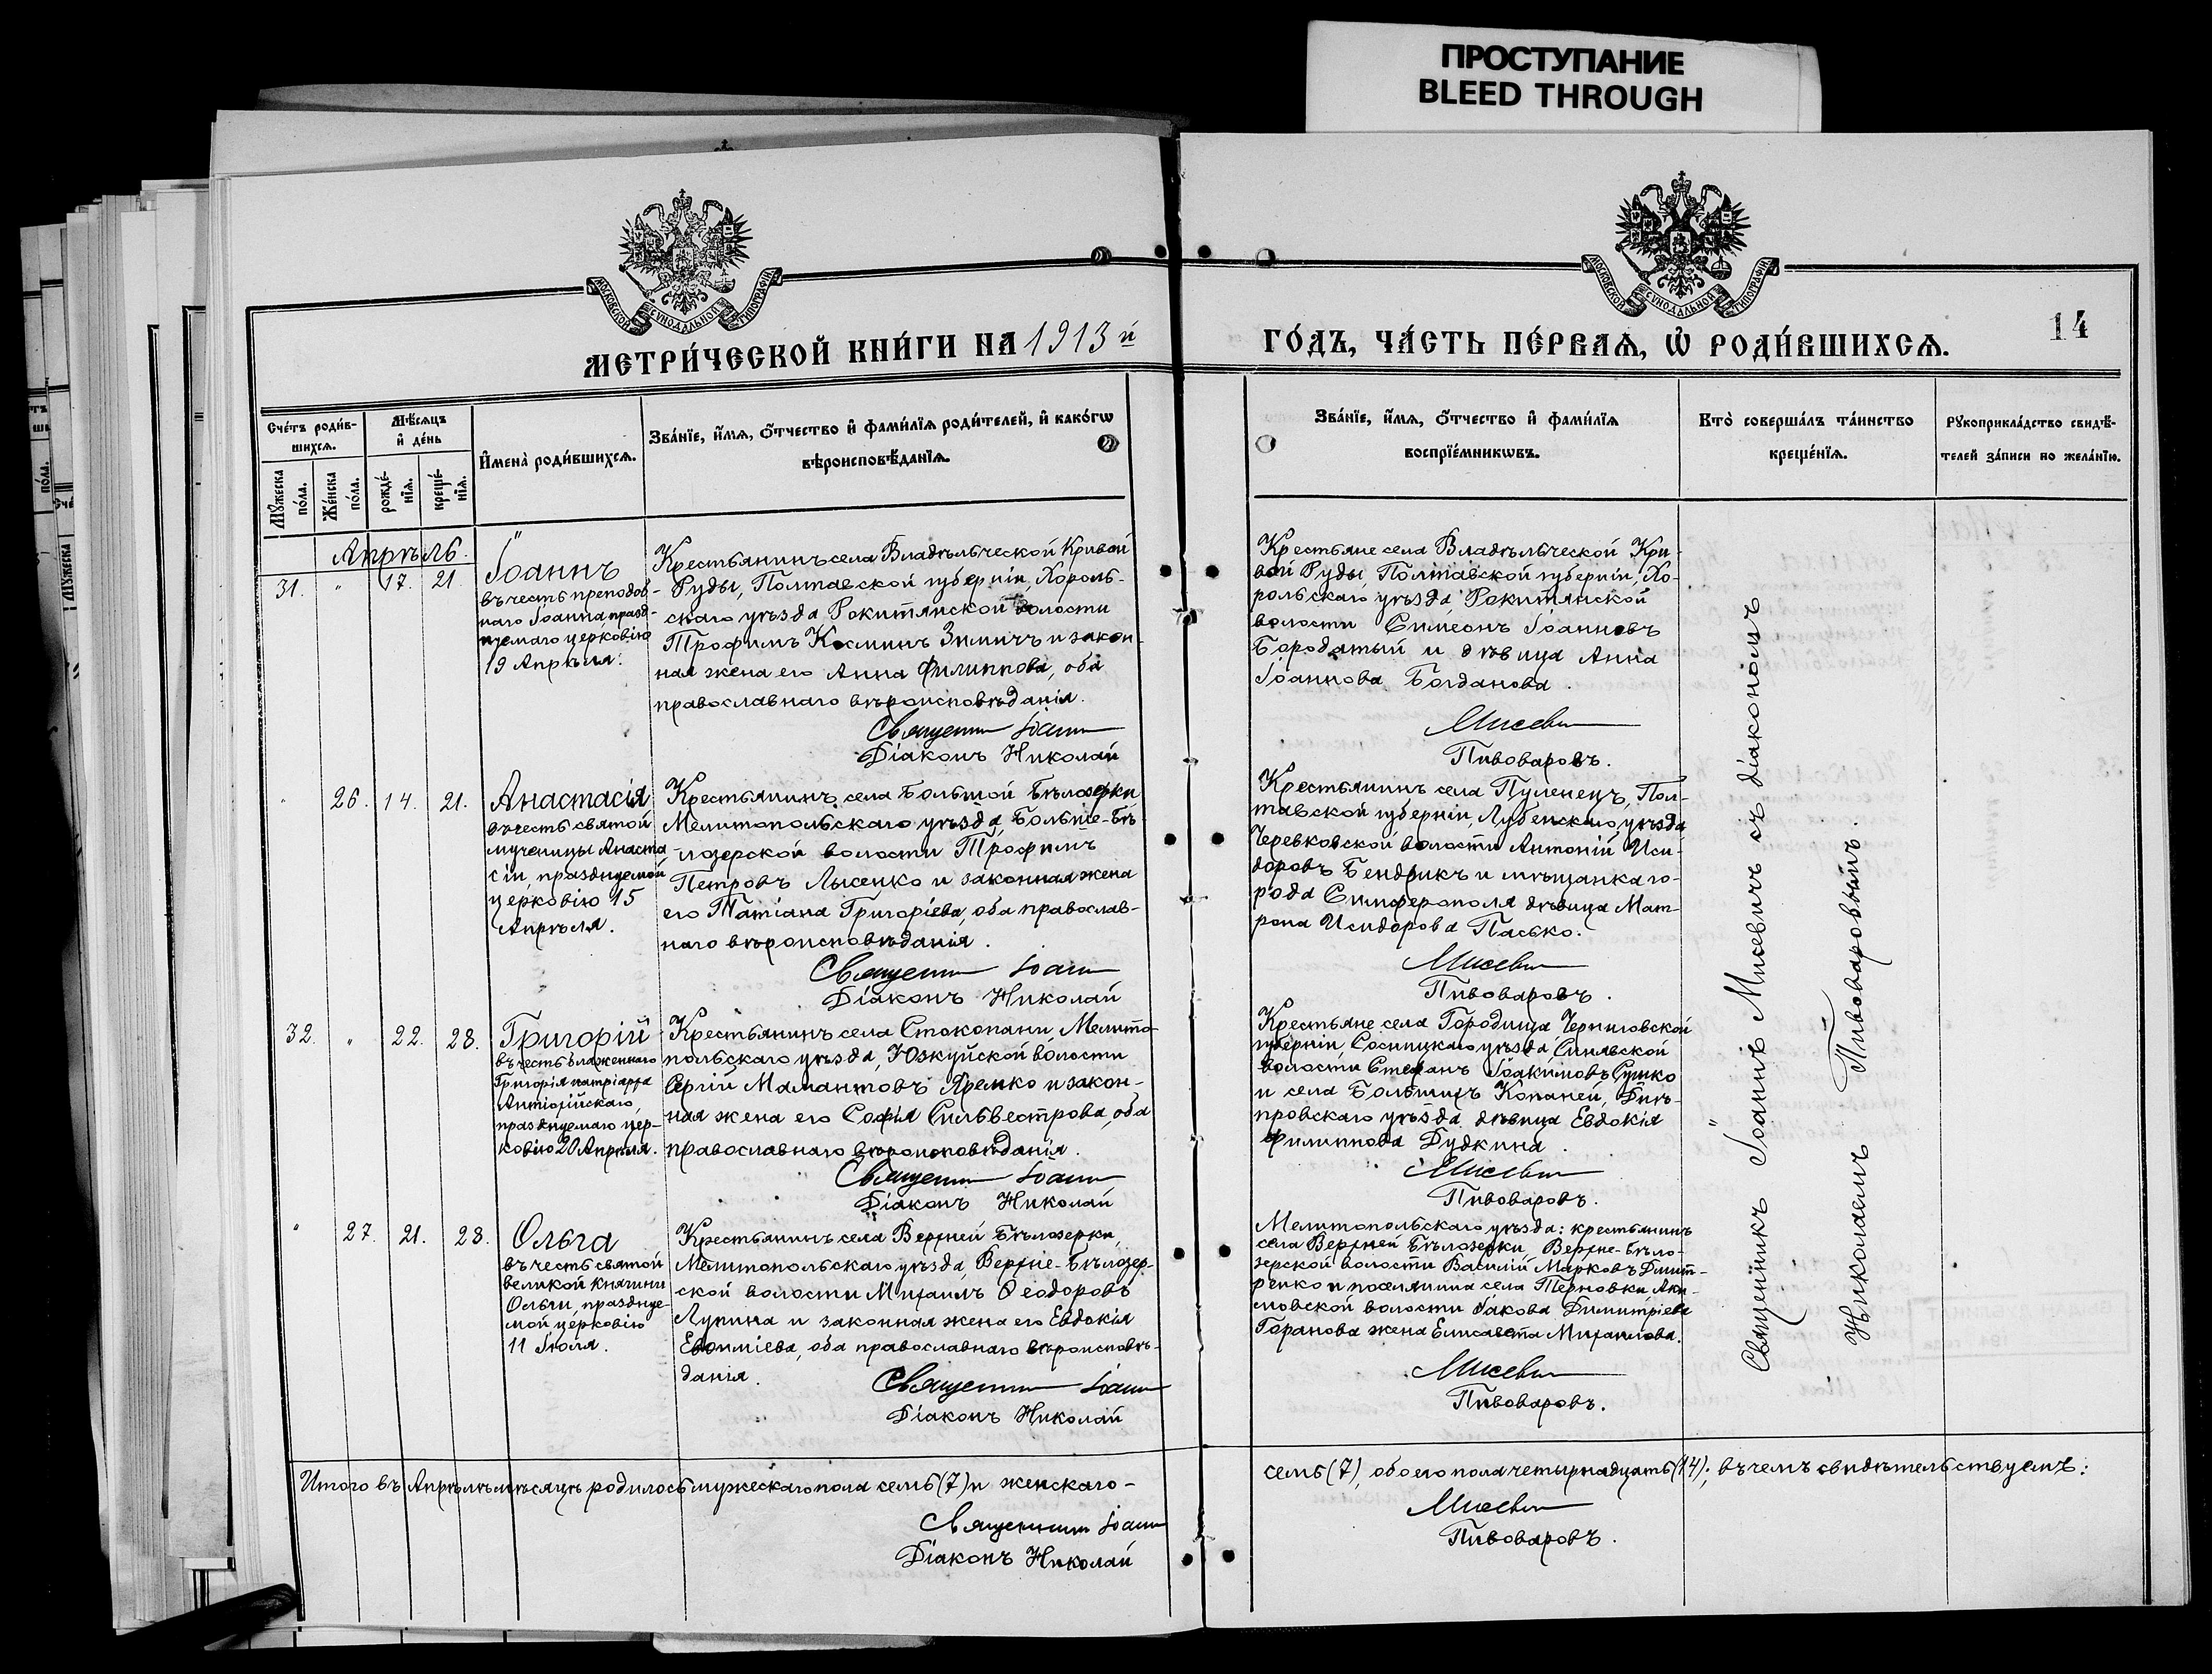 ПРОСТУПАНИЕ
BLEED THROUGH
МОСКОВСКОЙ СУНОДАЛЬНОЙ ТИПОГРАФІИ
МОСКОВСКОЙ СУНОДАЛЬНОЙ ТИПОГРАФІИ
МЕТРИ́ЧЕСКОЙ КНИ́ГИ НА 1913 й
ГО́ДЪ, ЧА́СТЬ ПЕ́РВАѦ, Ѡ҆ РОДИ́ВШИХСѦ.
14
Сче́тъ роди́в-
шихсѧ.
Мѣ́сѧцъ
и҆ де́нь
И҆мена̀ роди́вшихсѧ.
Зва́нїе, и҆́мѧ, ѻ҆́тчество и҆ фами́лїѧ роди́телей, и҆ како́гѡ
вѣроисповѣ́данїѧ.
Мꙋ́жеска
по́ла.
Же́нска
по́ла.
рожде́-
нїѧ.
креще́-
нїѧ.
Зва́нїе, и҆́мѧ, ѻ҆́тчество и҆ фами́лїѧ
воспрїе́мникѡвъ.
Кто̀ соверша́лъ та́инство
креще́нїѧ.
Рꙋкоприкла́дство свидѣ́-
телей за́писи по жела́нїю.
Апрѣль.
31. " 17. 21.
Іоаннъ
въ честь преподоб-
наго Іоанна, празд-
нуемаго церковію
19 Апрѣля.
Крестьянинъ села Владѣльческой Кривой
Руды, Полтавской губерніи, Хороль-
скаго уѣзда Рокитянской волости
Трофимъ Косминъ Зимичъ и закон-
ная жена его Анна Филиппова, оба
православнаго вѣроисповѣданія.
Священникъ Іоаннъ
Діаконъ Николай
Крестьяне села Владѣльческой Кри-
вой Руды, Полтавской губерніи, Хо-
рольскаго уѣзда, Рокитянской
волости Симеонъ Іоанновъ
Бородатый и дѣвица Анна
Іоаннова Богданова.
Мисевичъ
Пивоваровъ.
" 26. 14. 21.
Анастасія
въ честь святой
мученицы Анаста-
сіи, празднуемой
церковію 15
Апрѣля.
Крестьянинъ села Большой Бѣлозерки
Мелитопольскаго уѣзда, Больше-Бѣ-
лозерской волости Трофимъ
Петровъ Лысенко и законная жена
его Татіана Григоріева, оба православ-
наго вѣроисповѣданія.
Священникъ Іоаннъ
Діаконъ Николай
Крестьянинъ села Пуленецъ, Пол-
тавской губерніи, Лубенскаго уѣзда
Черевковской волости Антоній Иси-
доровъ Бендрикъ и мѣщанка го-
рода Симферополя дѣвица Мат-
рона Исидорова Пасько.
Мисевичъ
Пивоваровъ.
32. " 22. 28.
Григорій
въ честь блаженнаго
Григорія патріарха
Антіохійскаго,
празднуемаго цер-
ковію 20 Апрѣля.
Крестьянинъ села Стокопани, Мелито-
польскаго уѣзда, Юзкуйской волости
Сергій Мамантовъ Яремко и закон-
ная жена его Софія Сильвестрова, оба
православнаго вѣроисповѣданія.
Священникъ Іоаннъ
Діаконъ Николай
Крестьяне села Городища Черниговской
губерніи, Сосницкаго уѣзда Синявской
волости Стефанъ Іоакимовъ Сушко
и села Большихъ Копаней, Днѣ-
провскаго уѣзда дѣвица Евдокія
Филиппова Дудкина.
Мисевичъ
Пивоваровъ.
" 27. 21. 28.
Ольга
въ честь святой
великой княгини
Ольги, праздну-
мой церковію
11 Іюля.
Крестьянинъ села Верхней Бѣлозерки,
Мелитопольскаго уѣзда, Верхне-Бѣлозер-
ской волости Михаилъ Ѳеодоровъ
Лупина и законная жена его Евдокія
Евѳиміева, оба православнаго вѣроисповѣ-
данія.
Священникъ Іоаннъ
Діаконъ Николай
Мелитопольскаго уѣзда: крестьянинъ
села Верхней Бѣлозерки, Верхне-Бѣло-
зерской волости Василій Марковъ Дмит-
ренко и поселянина села Терновки Аки-
мовской волости Іакова Димитріева
Горанова жена Елисавета Михаилова.
Мисевичъ
Пивоваровъ.
Священникъ Іоаннъ Мисевичъ съ діакономъ
Николаемъ Пивоваровымъ.
Итого въ Апрѣлѣ мѣсяцѣ родилось мужескаго пола семь (7) и женскаго -
семь (7), обоего пола четырнадцать (14); въ чемъ свидѣтельствуемъ:
Священникъ Іоаннъ
Діаконъ Николай
Мисевичъ
Пивоваровъ.